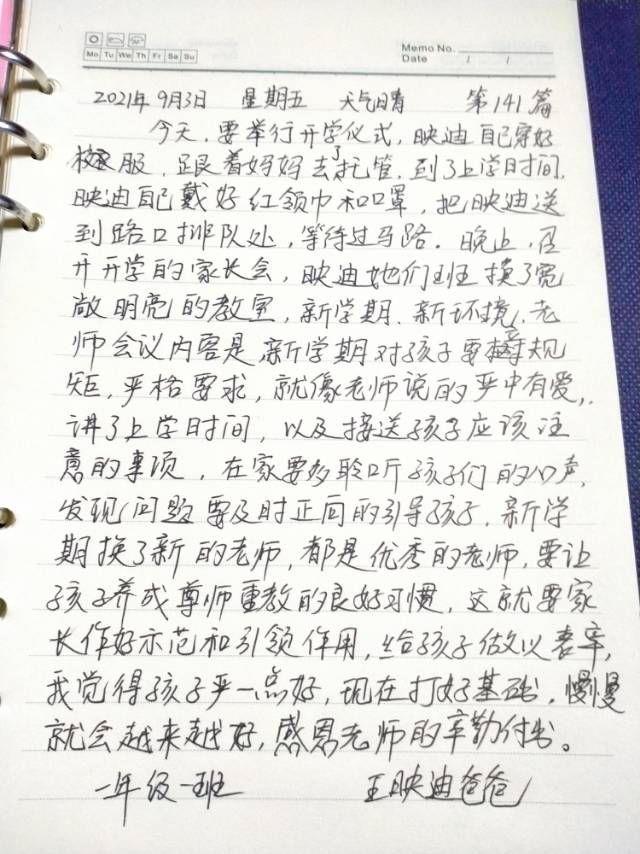 Mo Tu We Th Fr Sa Su
Memo No.
Date / /
2021年9月3日 星期五 天气晴 第141篇
今天,要举行开学仪式,映迪自己穿好
校服,跟着妈妈去了托管,到了上学时间,
映迪自己戴好红领巾和口罩,把映迪送
到路口排队处,等待过马路。晚上,召
开开学的家长会,映迪她们班换了宽
敞明亮的教室,新学期、新环境,老
师会议内容是新学期对孩子要精辛规
矩,严格要求,就像老师说的严中有爱,
讲了上学时间,以及接送孩子应该注
意的事项,在家要多聆听孩子们的心声,
发现问题要及时正向的引导孩子,新学
期换了新的老师,都是优秀的老师,要让
孩子养成尊师重教的良好习惯,这就要家
长作好示范和引领作用,给孩子做以表率,
我觉得孩子严一点好,现在打好基础,慢慢
就会越来越好,感恩老师的辛勤付出。
一年级一班 王映迪爸爸